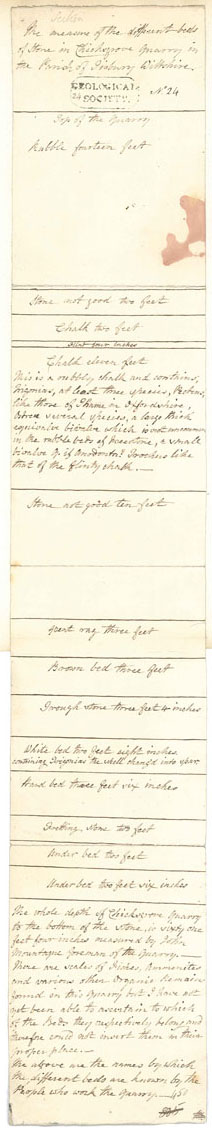 Section
The measure of the different beds
of Stone in Chicksgrove Quarry in
the Parish of Tisbury Wiltshire.
GEOLOGICAL
SOCIETY
No 24
Top of the Quarry
Rubble fourteen feet
Stone not good two feet
Chalk two feet
Flint four inches
Chalk eleven feet
This is a rubbly chalk and contains,
Trigonias, at least three species, Pectens,
like those of Thame in Oxfordshire,
Ostrea several species, a large thick
equivalve bivalve which is not uncommon
in the rubble beds of limestone, a small
bivalve q. if Anodontes? Trochus like
that of the flinty chalk.
Stone not good ten feet
Spent rag three feet
Brown bed three feet
Trough stone three feet 4 inches
White bed two feet eight inches
containing Trigonias the shell changed into spar
Hard bed three feet six inches
Fretting stone two feet
Under bed two feet
Under bed two feet six inches
The whole depth of Chicksgrove Quarry
to the bottom of the Stone, is sixty one
feet four inches measured by John
Montague foreman of the Quarry.
There are scales of Fishes, Ammonites
and various other Organic Remains
found in this Quarry but I have not
not been able to ascertain to which
of the Beds they respectively belong and
therefore could not insert them in their
proper place.
The above are the names by which
the different beds are known by the
People who work the Quarry